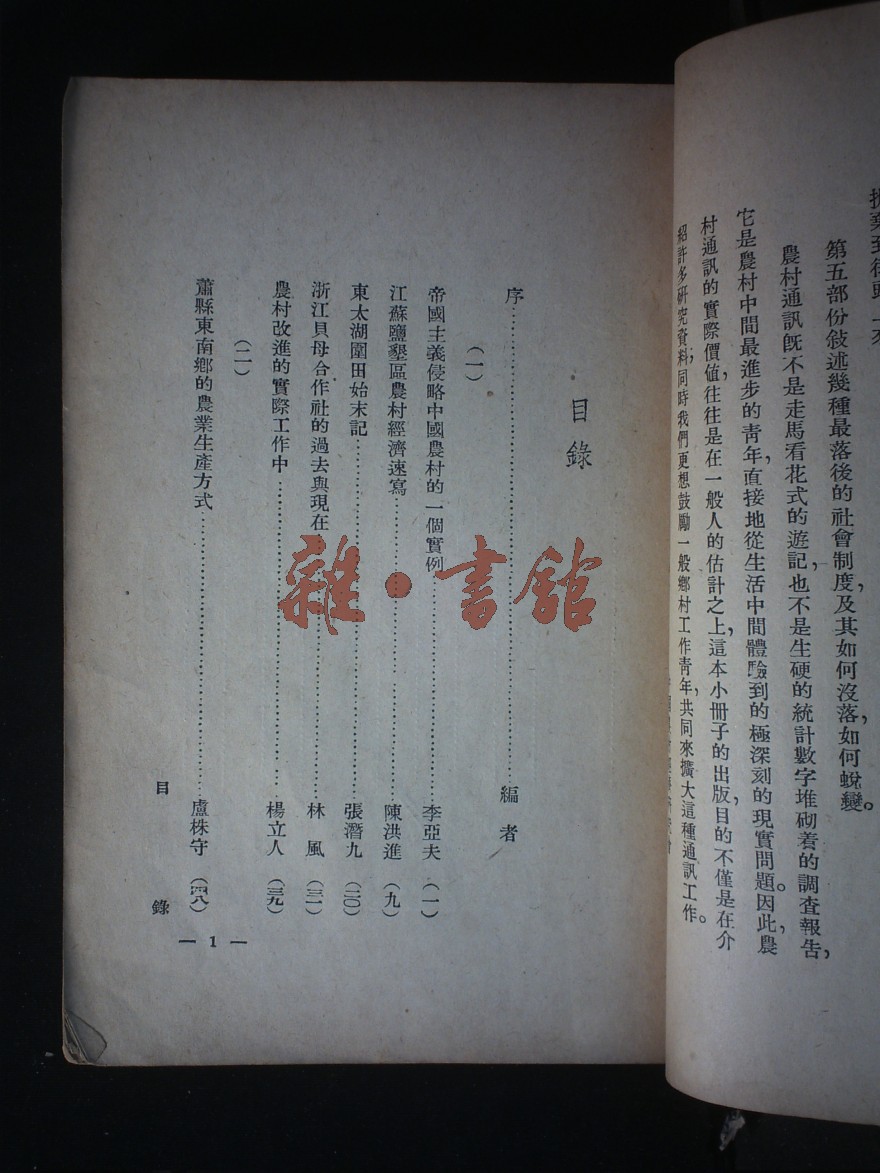 第五部份敍述幾種最落後的社會制度,及其如何沒落,如何蛻變。
農村通訊旣不是走馬看花式的遊記,也不是生硬的統計數字堆砌着的調査報告,
它是農村中間最進步的靑年,直接地從生活中間體驗到的極深刻的現實問題。因此,農
村通訊的實際價値,往往是在一般人的估計之上,這本小冊子的出版,目的不僅是在介
紹許多硏究資料,同時我們更想鼓勵一般鄉村工作靑年,共同來擴大這種通訊工作。
目錄
序……編者
(一)
帝國主義侵略中國農村的一個實例……李亞夫(一)
江蘇鹽墾區農村經濟速寫……陳洪進(九)
東太湖圍田始末記……張潛九(二〇)
浙江貝母合作社的過去與現在……林風(三一)
農村改進的實際工作中……楊立人(三九)
(二)
蕭縣東南鄉的農業生產方式……盧株守(四八)
目錄
— 1 —
雜·書館